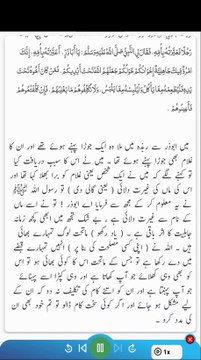 رَجُلًا فَعَيَّرْتُهُ بِأُمِّهِ، فَقَالَ لِي النَّبِيُّ صَلَّى اللَّهُ عَلَيْهِ وَسَلَّمَ: يَا أَبَا ذَرٍّ، أَعَيَّرْتَهُ بِأُمِّهِ، إِنَّكَ
امْرُؤٌ فِيكَ جَاهِلِيَّةٌ إِخْوَانُكُمْ خَوَلُكُمْ جَعَلَهُمُ اللَّهُ تَحْتَ أَيْدِيكُمْ، فَمَنْ كَانَ أَخُوهُ تَحْتَ
يَدِهِ فَلْيُطْعِمْهُ مِمَّا يَأْكُلُ وَلْيُلْبِسْهُ مِمَّا يَلْبَسُ، وَلَا تُكَلِّفُوهُمْ مَا يَغْلِبُهُمْ، فَإِنْ كَلَّفْتُمُوهُمْ
فَأَعِينُوهُمْ
میں ابوذر سے ربذہ میں ملا وہ ایک جوڑا پہنے ہوئے تھے اور ان کا
غلام بھی جوڑا پہنے ہوئے تھا۔ میں نے اس کا سبب دریافت کیا
تو کہنے لگے کہ میں نے ایک شخص یعنی غلام کو برا بھلا کہا تھا اور
اس کی ماں کی غیرت دلائی (یعنی گالی دی) تو رسول اللہ ﷺ
نے یہ معلوم کر کے مجھ سے فرمایا اے ابوذر! تو نے اسے ماں
کے نام سے غیرت دلائی ہے، بے شک تجھ میں ابھی کچھ زمانہ
جاہلیت کا اثر باقی ہے۔ (یاد رکھو) ماتحت لوگ تمہارے بھائی
ہیں۔ اللہ نے (اپنی کسی مصلحت کی بنا پر) انہیں تمہارے قبضے
میں دے رکھا ہے تو جس کے ماتحت اس کا کوئی بھائی ہو تو اس
کو بھی وہی کھلائے جو آپ کھاتا ہے اور وہی کپڑا اسے پہنائے
جو آپ پہنتا ہے اور ان کو اتنے کام کی تکلیف نہ دو کہ ان کے
لیے مشکل ہو جائے اور اگر کوئی سخت کام ڈالو تو تم خود بھی ان
کی مدد کرو۔
1x